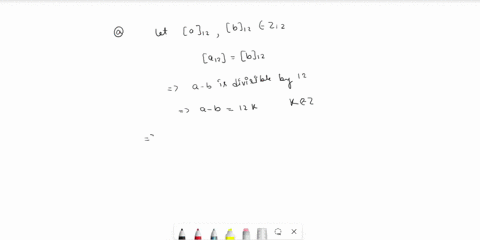 ⓐ Let [a]₁₂, [b]₁₂ ∈ Z₁₂
[a₁₂] = [b]₁₂
=> a-b is divisible by 12
=> a-b = 12k K∈Z
=>